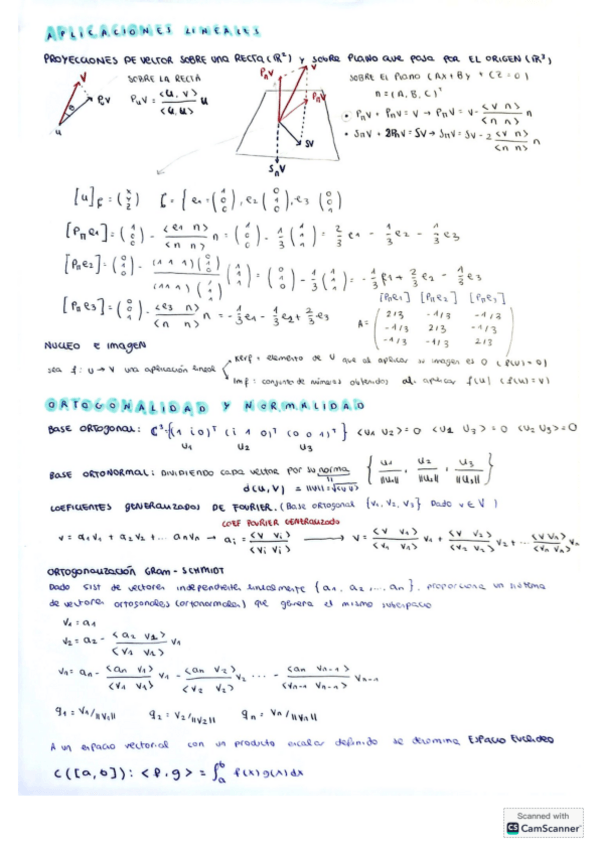 APLICACIONES LINEALES
PROYECCIONES DE VECTOR SOBRE UNA RECTA (ℝ²) Y SOBRE PLANO QUE PASA POR EL ORIGEN (ℝ³)
SOBRE LA RECTA
P_u V = <u, v> / <u, u> u
SOBRE EL PLANO (Ax + By + Cz = 0)
n = (A, B, C)ᵀ
• P_n V + P_π V = V → P_π V = V - <v n> / <n n> n
• S_π V + 2P_n V = V → S_π V = V - 2 <v n> / <n n> n
v
u
θ
P_n V
V
P_π V
SV
S_π V
[u]_ℰ = (x y z) ℰ = { e1 = (1 0 0), e2 (0 1 0), e3 (0 0 1)
[P_π e1] = (1 0 0) - <e1 n> / <n n> n = (1 0 0) - 1/3 (1 1 1) = 2/3 e1 - 1/3 e2 - 1/3 e3
[P_π e2] = (0 1 0) - (1 1 1)(0 1 0) / (1 1 1)(1 1 1) (1 1 1) = (0 1 0) - 1/3 (1 1 1) = -1/3 e1 + 2/3 e2 - 1/3 e3
[P_π e3] = (0 0 1) - <e3 n> / <n n> n = -1/3 e1 - 1/3 e2 + 2/3 e3
[P_π e1] [P_π e2] [P_π e3]
A = ( 2/3 -1/3 -1/3
-1/3 2/3 -1/3
-1/3 -1/3 2/3 )
NUCLEO E IMAGEN
sea f: U → V una aplicación lineal
Kerf = elemento de U que al aplicar su imagen es 0 (f(u) = 0)
Imf: conjunto de números obtenidos al aplicar f(u) (f(u) = v)
ORTOGONALIDAD Y NORMALIDAD
BASE ORTOGONAL: ℂ³ {(1 i 0)ᵀ (i 1 0)ᵀ (0 0 1)ᵀ} <u1 u2> = 0 <u1 u3> = 0 <u2 u3> = 0
u1 u2 u3
BASE ORTONORMAL: DIVIDIENDO CADA VECTOR POR SU norma { u1 / ||u1||, u2 / ||u2||, u3 / ||u3|| }
d(u, v) = ||v|| = √<v v>
COEFICIENTES GENERALIZADOS DE FOURIER. (Base ortogonal {v1, v2, v3} Dado v ∈ V)
COEF FOURIER GENERALIZADO
v = a1v1 + a2v2 + ... anvn → ai = <v vi> / <vi vi> → v = <v v1> / <v1 v1> v1 + <v v2> / <v2 v2> v2 + ... <v vn> / <vn vn> vn
ORTOGONALIZACIÓN GRAM - SCHMIDT
Dado sist de vectores independientes linealmente {a1, a2, ..., an}, proporciona un sistema
de vectores ortogonales (ortonormales) que genera el mismo subespacio
v1 = a1
v2 = a2 - <a2 v1> / <v1 v1> v1
vn = an - <an v1> / <v1 v1> v1 - <an v2> / <v2 v2> v2 ... - <an vn-1> / <vn-1 vn-1> vn-1
q1 = v1/||v1|| q2 = v2/||v2|| qn = vn/||vn||
A un espacio vectorial con un producto escalar definido se denomina ESPACIO EUCLIDEO
C([a, b]): <f, g> = ∫ₐᵇ f(x)g(x)dx
Scanned with
CS CamScanner